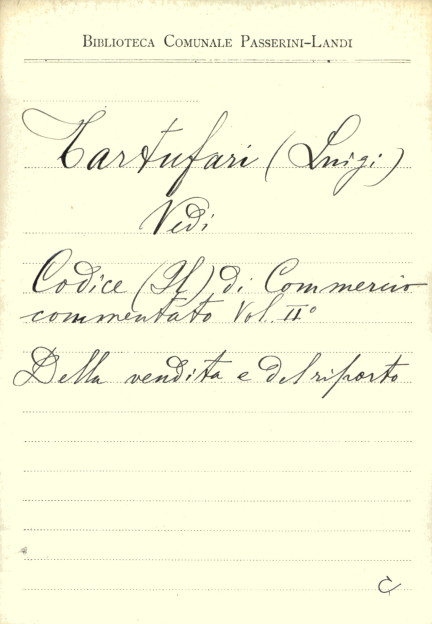 BIBLIOTECA COMUNALE PASSERINI-LANDI
Tartufari (Luigi)
Vedi
Codice (Il) di Commercio
commentato Vol. II°
Della vendita e del riporto
C